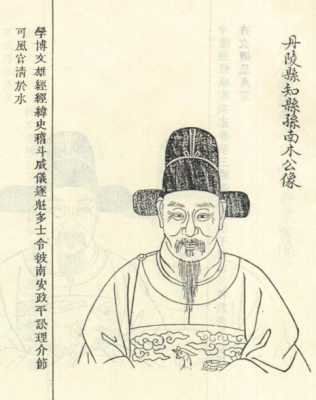 丹陵縣知縣孫南木公像
學博文雄經經緯史稽斗威儀逐鬽多士令彼南安政平訟理介節
可風官清於水